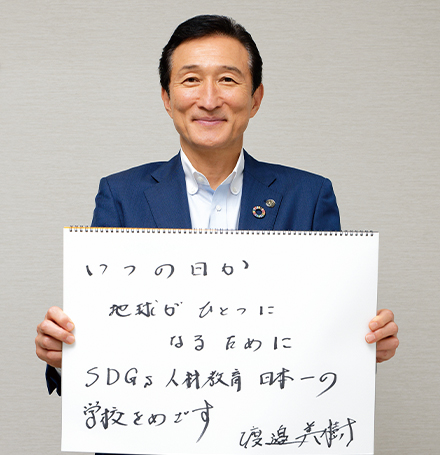 いつの日か
地球が ひとつに
なるために
SDGs 人材教育 日本一の
学校をめざす
渡邉美樹